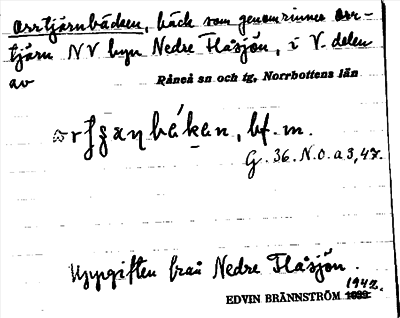 Orrtjärnbäcken, bäck som genomrinner Orr-
tjärn NV byn Nedre Flåsjön, i V. delen
av
Råneå sn och tg, Norrbottens län
bf. m.
G. 36. N.O. a 3, 47.
Uppgiften från Nedre Flåsjön.
1942.
EDVIN BRÄNNSTRÖM